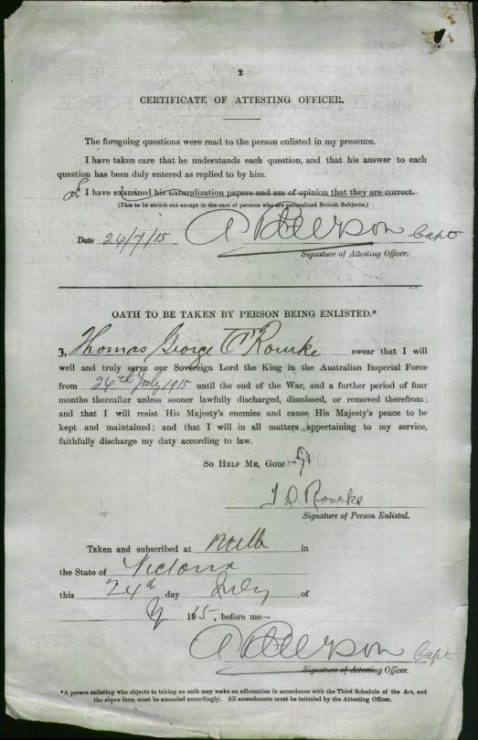 2
CERTIFICATE OF ATTESTING OFFICER.
The foregoing questions were read to the person enlisted in my presence.
I have taken care that he understands each question, and that his answer to each
question has been duly entered as replied to by him.
I have examined his naturalization papers and am of opinion that they are correct.
(This to be struck out except in the case of persons who are naturalized British Subjects.)
Date 24/7/15 Capt
Signature of Attesting Officer.
OATH TO BE TAKEN BY PERSON BEING ENLISTED.*
3, Thomas George O'Rourke swear that I will
well and truly serve our Sovereign Lord the King in the Australian Imperial Force
from 24th July 1915 until the end of the War, and a further period of four
months thereafter unless sooner lawfully discharged, dismissed, or removed therefrom;
and that I will resist His Majesty's enemies and cause His Majesty's peace to be
kept and maintained; and that I will in all matters appertaining to my service,
faithfully discharge my duty according to law.
SO HELP ME, GOD.
T O Rourke
Signature of Person Enlisted.
Taken and subscribed at Melb in
the State of Victoria
this 24th day July of
1915, before me—
Capt
Signature of Attesting Officer.
*A person enlisting who objects to taking an oath may make an affirmation in accordance with the Third Schedule of the Act, and
the above form must be amended accordingly. All amendments must be initialed by the Attesting Officer.